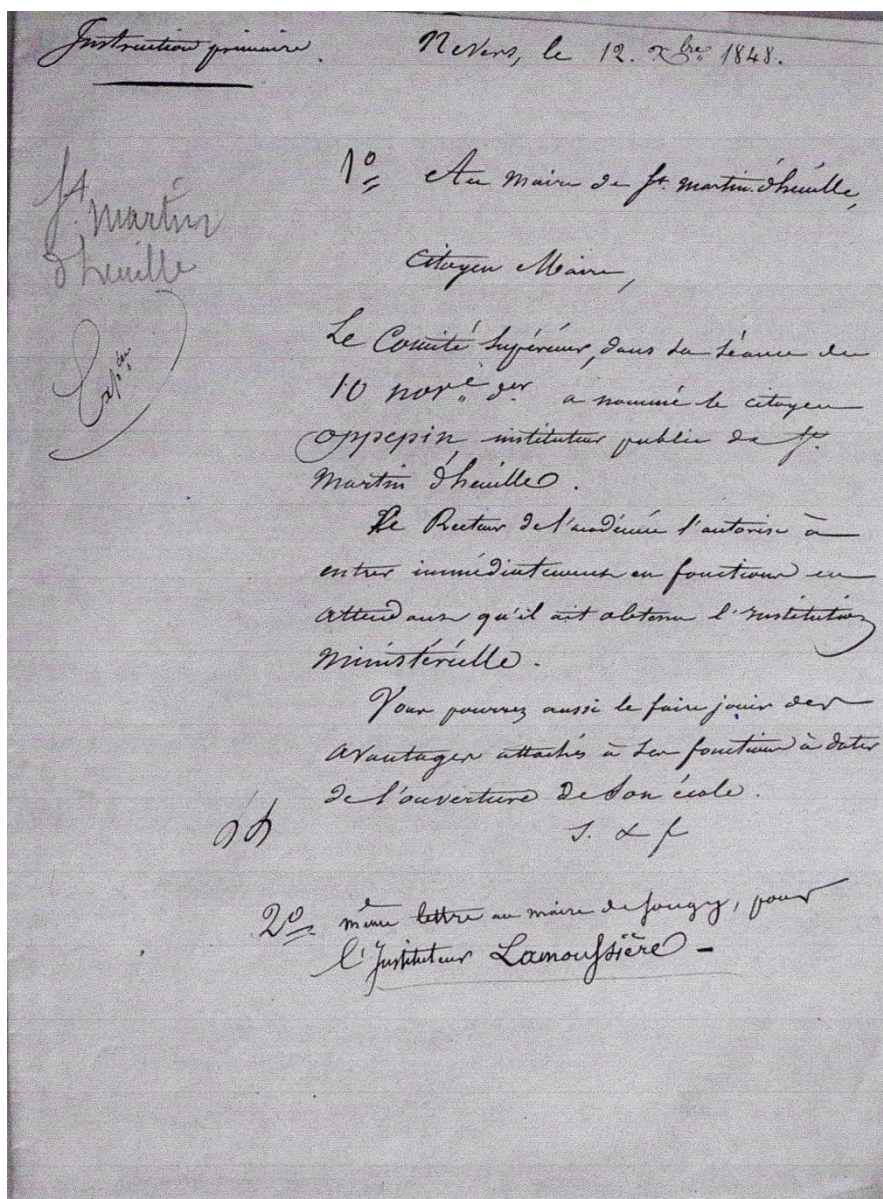 Instruction primaire.
Nevers, le 12. xbre 1848.
St. martin
d'heuille
Expiée
1º Au maire de St. martin d'heuille,
Citoyen Maire,
Le Comité Supérieur, dans sa séance du
10 nov.e der a nommé le citoyen
oppepin instituteur public de St.
Martin d'heuille.
Le Recteur de l'académie l'autorise à
entrer immédiatement en fonctions en
attendant qu'il ait obtenu l'institution
ministérielle.
Vous pourrez aussi le faire jouir des
avantages attachés à ses fonctions à dater
de l'ouverture de son école.
S. & f
2º même lettre au maire de Sougy, pour
l'Instituteur Lamoussière -